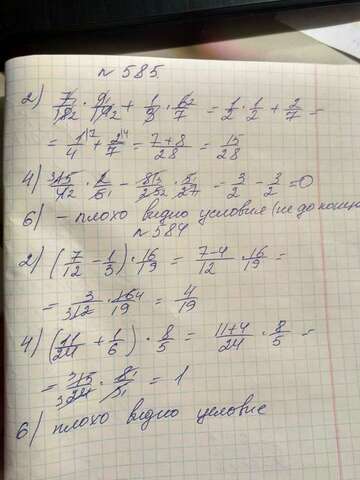 № 585.
2) 7/18 2 · 9 1/14 2 + 1/3 · 6 2/7 = 1/2 · 1/2 + 2/7 =
= 1/4 \7 + 2/7 \4 = 7+8/28 = 15/28
4) 3 15/4 2 · 2/5 1 - 81 3/25 2 · 5 1/27 = 3/2 - 3/2 = 0
6) - плохо видно условия (не до конца
№ 584
2) (7/12 - 1/3) · 16/19 = 7-4/12 · 16/19 =
= 3/3 12 · 16 4/19 = 4/19
4) (11/24 + 1/6) · 8/5 = 11+4/24 · 8/5 =
= 3 15/3 24 · 8 1/5 1 = 1
6) плохо видно условие